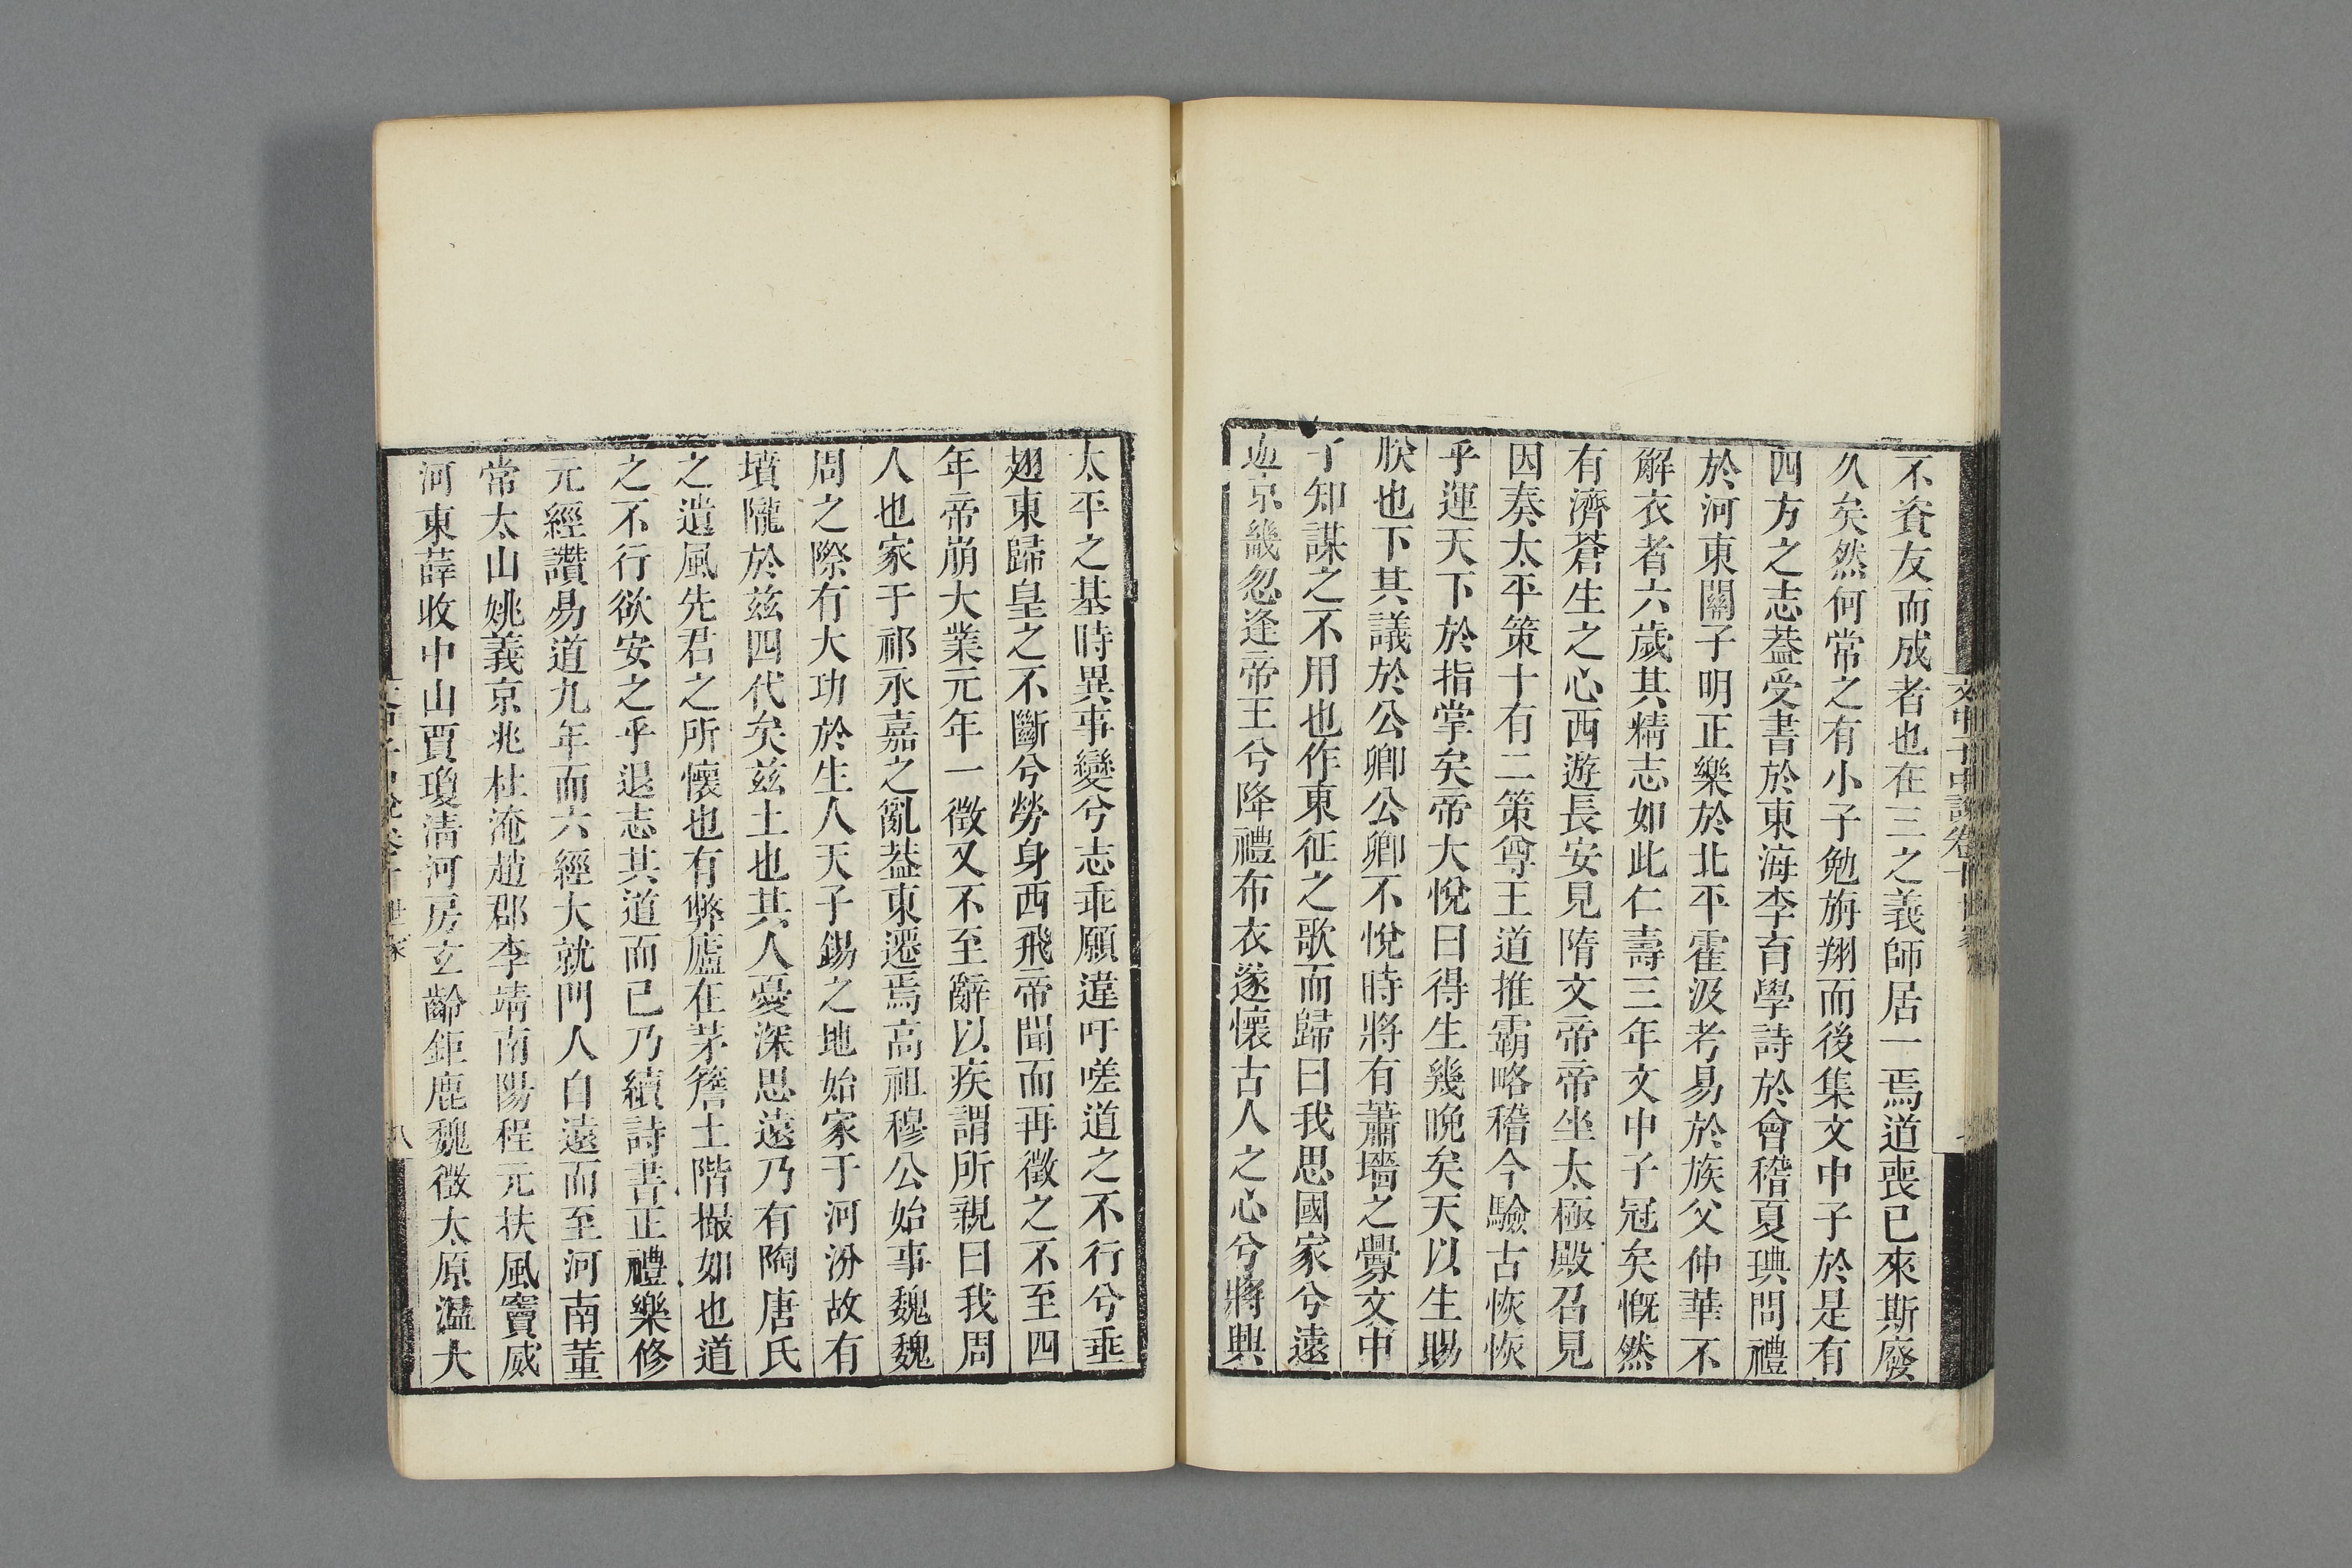 不資友而成者也在三之義師居一焉道喪已來斯廢
久矣然何常之有小子勉旃翔而後集文中子於是有
四方之志葢受書於東海李育學詩於會稽夏琠問禮
於河東關子明正樂於北平霍汲考易於族父仲華不
解衣者六歲其精志如此仁壽三年文中子冠矣慨然
有濟蒼生之心西遊長安見隋文帝帝坐太極殿召見
因奏太平策十有二策尊王道推霸略稽今驗古恢恢
乎運天下於指掌矣帝大悅曰得生幾晚矣天以生賜
朕也下其議於公卿公卿不悅時將有蕭墻之釁文中
子知謀之不用也作東征之歌而歸曰我思國家兮遠
遊京畿忽逢帝王兮降禮布衣遂懷古人之心兮將興
太平之基時異事變兮志乖願違吁嗟道之不行兮垂
翅東歸皇之不斷兮勞身西飛帝聞而再徵之不至四
年帝崩大業元年一徵又不至辭以疾謂所親曰我周
人也家于祁永嘉之亂葢東遷焉高祖穆公始事魏魏
周之際有大功於生人天子錫之地始家于河汾故有
墳隴於兹四代矣兹土也其人憂深思遠乃有陶唐氏
之遺風先君之所懷也有弊廬在茅簷土階撮如也道
之不行欲安之乎退志其道而已乃續詩書正禮樂修
元經讚易道九年而六經大就門人自遠而至河南董
常太山姚義京兆杜淹趙郡李靖南陽程元扶風竇威
河東薛收中山賈瓊淸河房玄齡鉅鹿魏徵太原溫大
文中子中說卷十世家
八